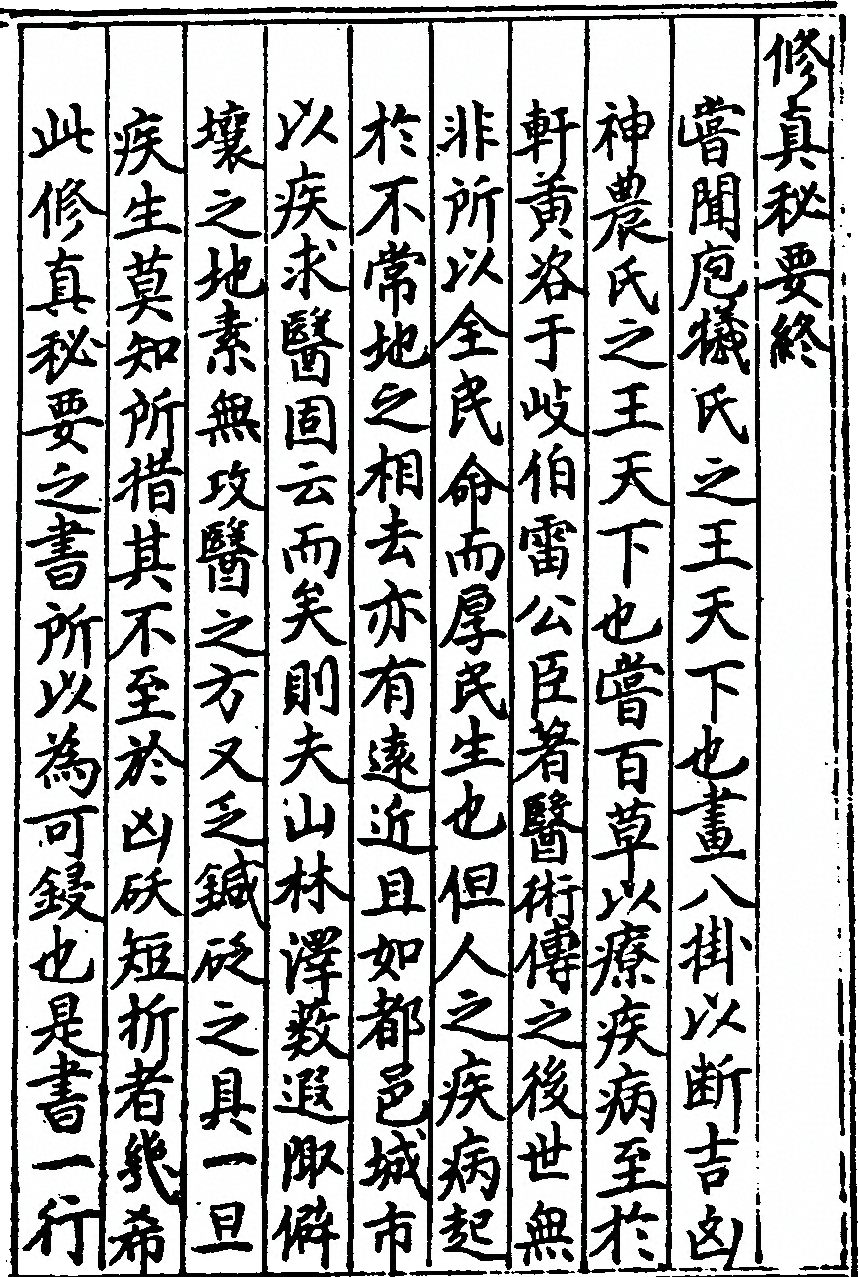 修真秘要終
嘗聞庖犧氏之王天下也畫八掛以断吉凶
神農氏之王天下也嘗百草以療疾病至於
軒黃咨于岐伯雷公臣著醫術傳之後世無
非所以全民命而厚民生也但人之疾病起
於不常地之相去亦有遠近且如都邑城市
以疾求醫固云而矣則夫山林澤薮遐陬僻
壤之地素無攻醫之方又乏鍼砭之具一旦
疾生莫知所措其不至於凶殀短折者幾希
此修真秘要之書所以為可鋟也是書一行